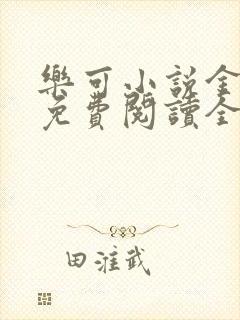 樂可小說全
免費閱讀全
田漼武